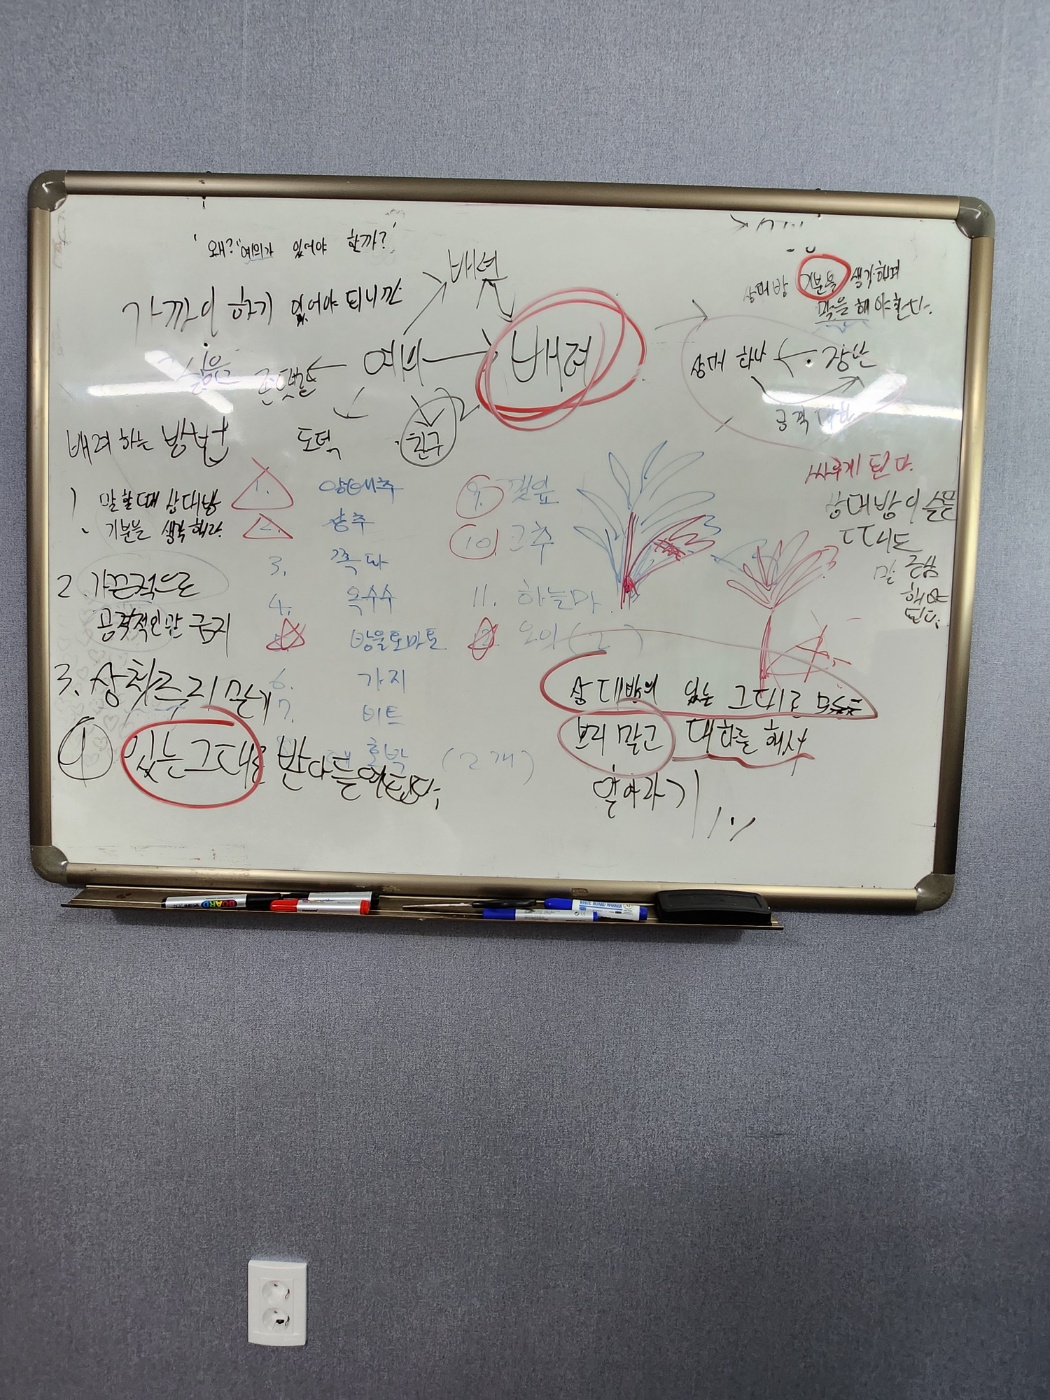 '왜?' 예의가 있어야 할까?'
배려
가까이 하기 있어야 되니깐
예의
배려
도덕
친구
상대방 기분을 생각하며
말을 해야한다.
상대 하나
장난
싸우게 된다.
상대방이 슬플
때도
말 조심
해야
된다.
배려 하는 방법
1 말할때 상대방
기분을 생각해라.
2
공격적인말 금지
3. 상처주지 만기
④ 있는그대로 받아들여준다.
1. 양배추
2. 상추
3. 쪽파
4. 옥수수
방울토마토
6. 가지
7. 비트
호박 (2개)
9. 깻잎
10. 고추
11. 하늘마
오이 (2)
상대방의 있는 그대로 모습
보지 말고 대화를 해서
알아가기